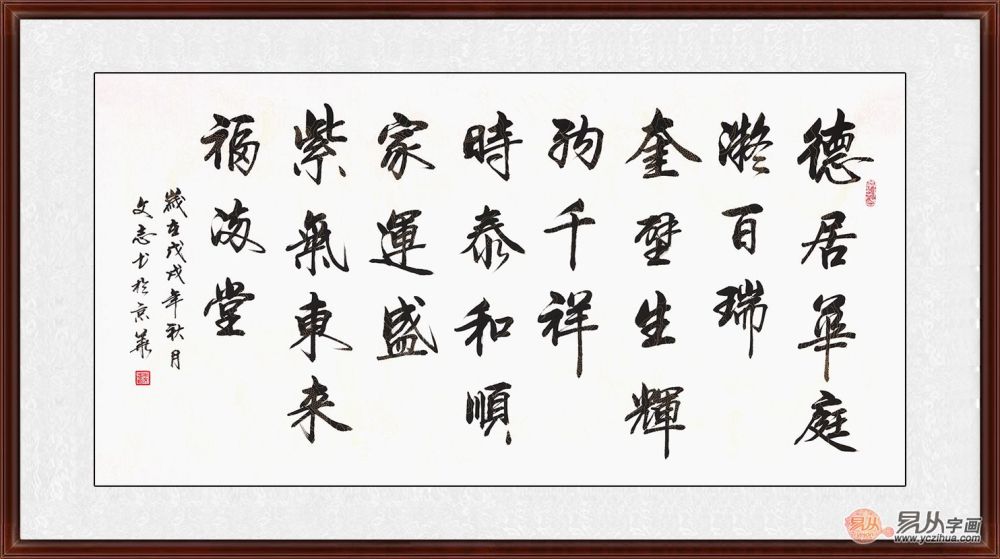 德居華庭
凝百瑞
奎壁生輝
納千祥
時泰和順
家運盛
紫氣東来
福满堂
歲在戊戌年秋月
文志书於京華
易从
易从字画
www.yczihua.com